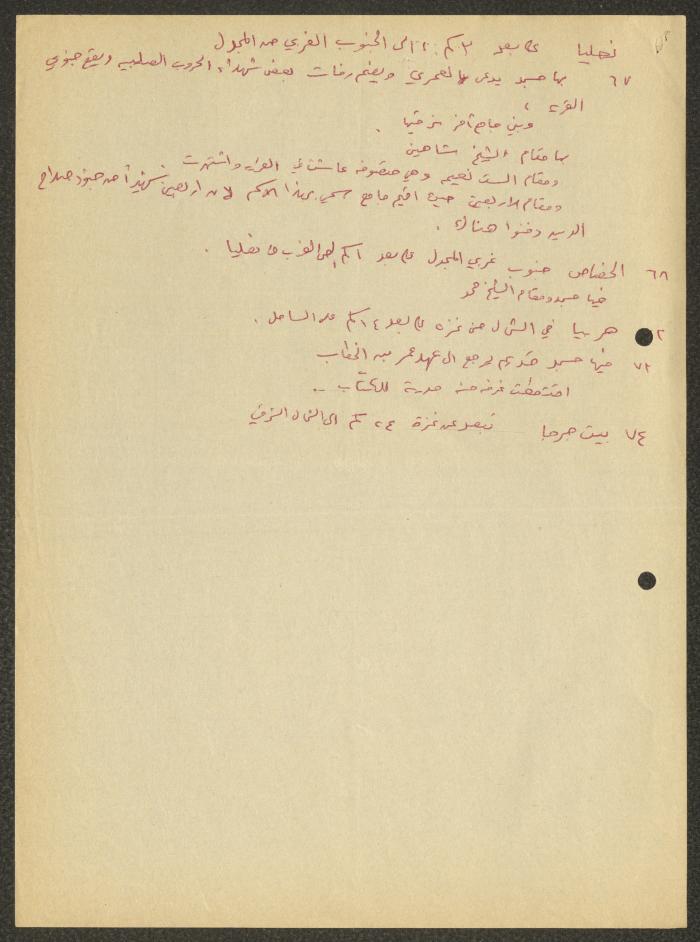 نعليا على بعد ٣ كم الى الجنوب الغربي من المجدل
٦٧ بها مسجد يدعى بالعمري ويضم رفات بعض شهداء الحروب الصليبيه ويقع جنوبي
القريه
وبني جامع آخر شرقيها .
بها مقام الشيخ شاهين
ومقام الست نعيمه وهي متصوفه عاشت في القريه واشتهرت
ومقام الاربعين حيث اقيم جامع سمي بهذا الاسم لان اربعين شهيداً من جنود صلاح
الدين دفنوا هناك .
٦٨ الخصاص جنوب غربي المجدل على بعد كم الى الغرب من نعليا .
فيها مسجد ومقام الشيخ محمد
هربيا في الشمال من غزه على بعد ١٤ كم على الساحل .
٧٢ فيها مسجد قديم يرجع الى عهد عمر بن الخطاب
اقتطعت غرفه منه مدرسة للكتاب ..
٧٤ بيت جرجا تبعد عن غزة كم الى الشمال الشرقي